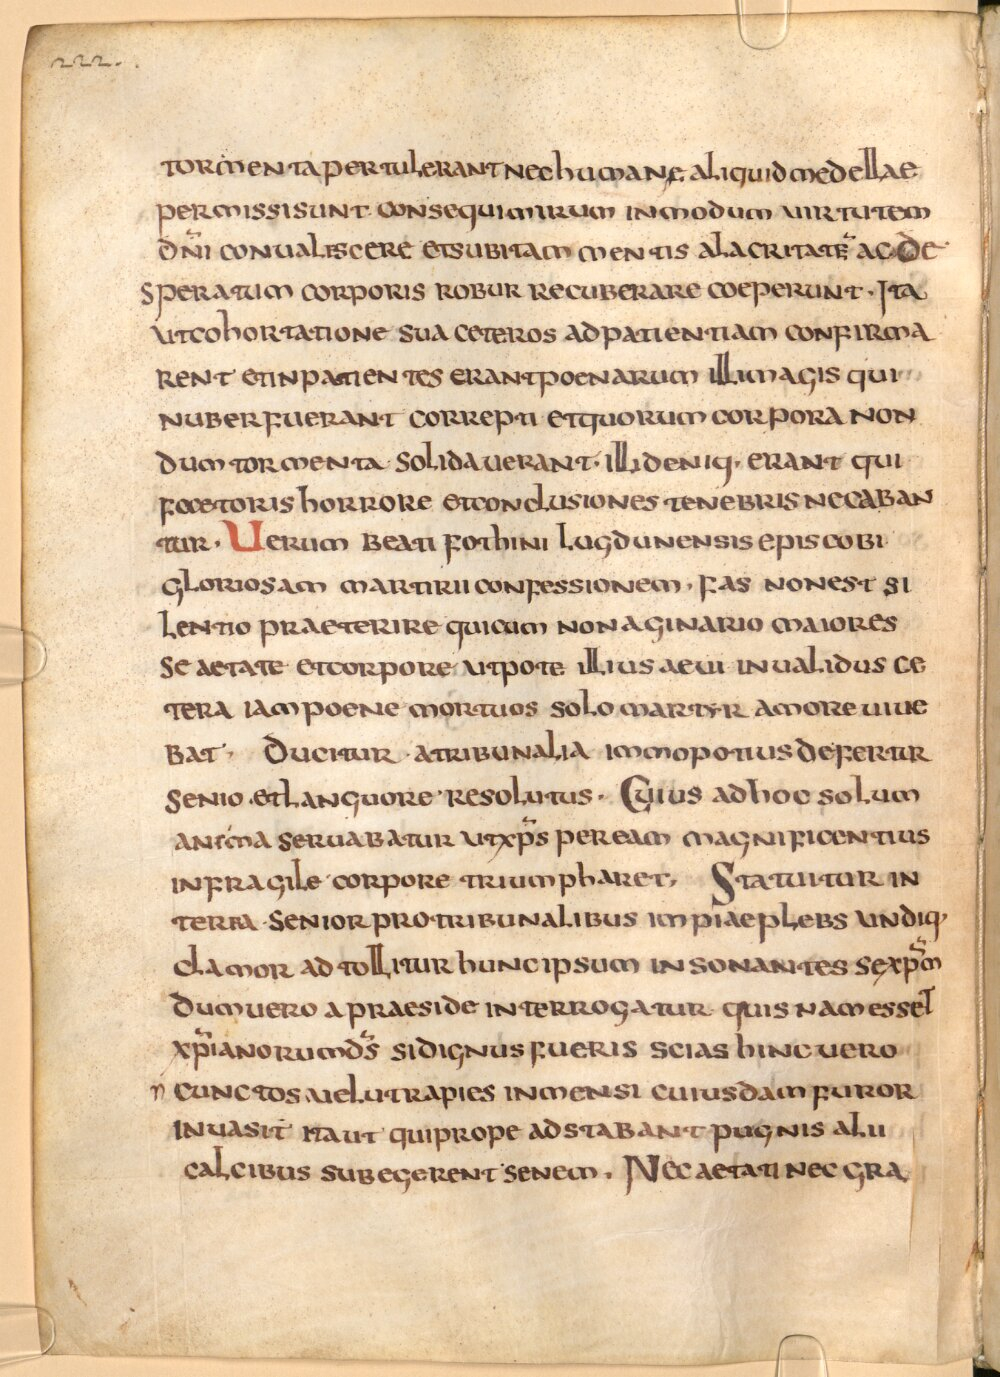 222.
tormenta pertulerant nec humane aliquid medellae
permissi sunt consequi mirum inmodum uirtutem
dn̄i conualiscere et subitam mentis alacritatē ac de
speratum corporis robur recuberare coeperunt · Ita
ut cohortatione sua ceteros ad patientiam confirma
rent et inpatientes erant poenarum illi magis qui
nuber fuerant correpti et quorum corpora non
dum tormenta solidauerant · illi deniq· erant qui
focetoris horrore et conclusiones tenebris necaban
tur · Uerum beati fothini lugdunensis episcobi
gloriosam martirii confessionem · fas non est si
lentio praeterire qui cum nonaginario maiores
se aetate et corpore utpote illius aeui inualidus ce
tera iam poene mortuos solo martyr amore uiue
bat · Ducitur a tribunalia immo potius defertur
senio et languore resolutus · Cuius ad hoc solum
anima seruabatur ut xp̄s per eam magnificentius
in fragile corpore triumpharet, Statuitur in
terra senior pro tribunalibus impiae plebs undiq·
clamor adtollitur hunc ipsum insonantes se xp̄m
dum uero a praeside interrogatur quis nam esset
xp̄ianorum d̄s si dignus fueris scias hinc uero
cunctos uelut rapies inmensi cuiusdam furor
inuasit ita ut qui prope adstabant pugnis alii
calcibus subegerent senem · Nec aetati nec gra